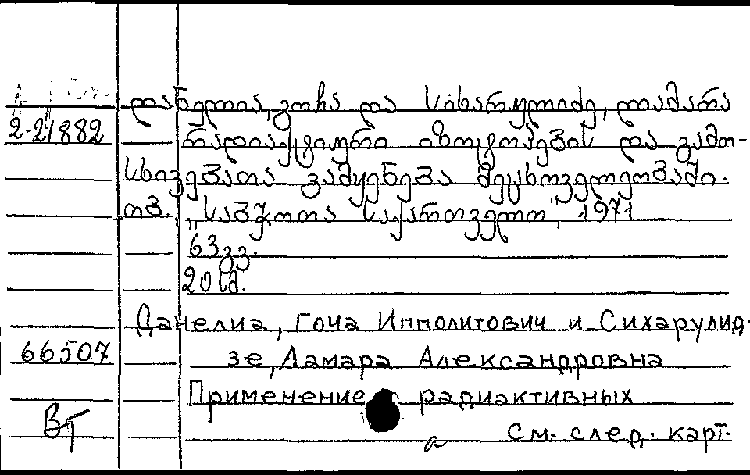 დანელია, გოჩა და სიხარულიძე, ლამარა
2-21882
რადიაქტიური იზოტოპების და გამო-
სხივებათა გამოყენება მეცხოველეობაში.
თბ. „საბჭოთა საქართველო", 1971
63 გვ.
20 სმ.
Данелиа, Гоча Ипполитович и Сихарулид-
66507
зе, Ламара Александровна
Применение радиактивных
Вт
см. след. карт.